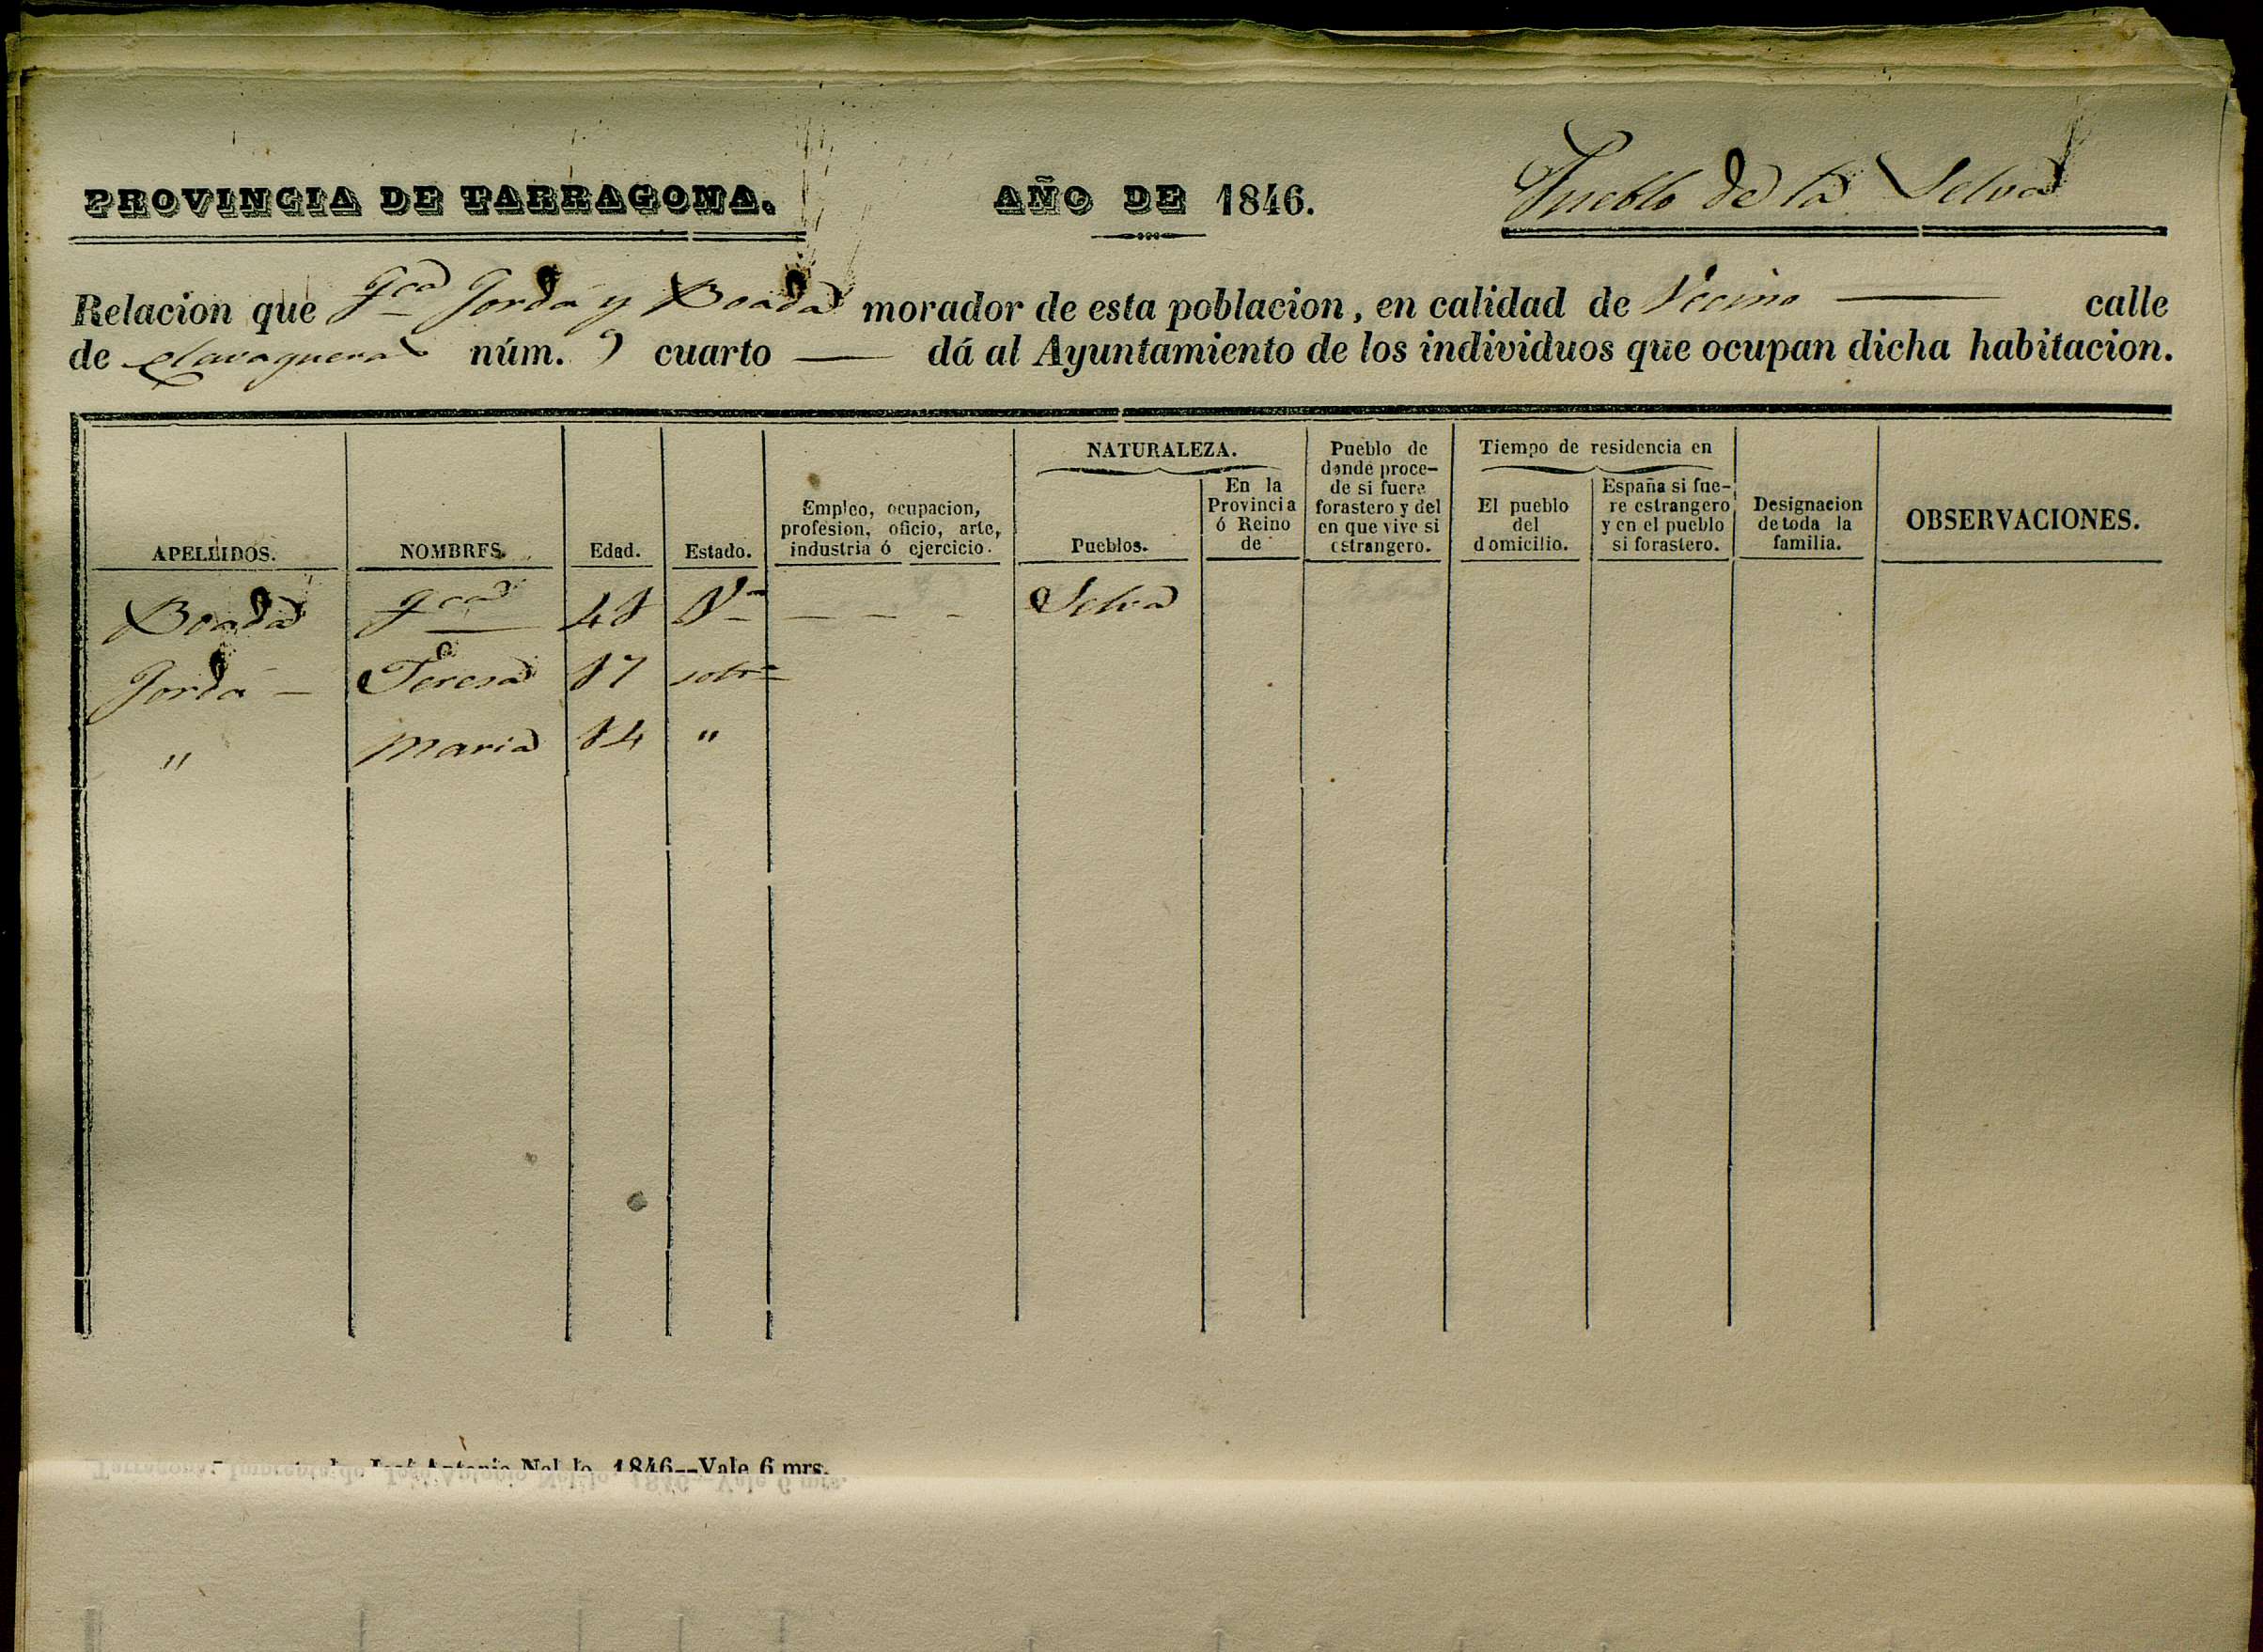 PROVINCIA DE TARRAGONA. AÑO DE 1846. Pueblo de la Selva
Relacion que Fca Jordá y Boada morador de esta poblacion, en calidad de Vecino calle
de Clavaguera núm. 9 cuarto — dá al Ayuntamiento de los individuos que ocupan dicha habitacion.
APELLIDOS.
NOMBRES.
Edad.
Estado.
Empleo, ocupacion,
profesion, oficio, arte,
industria ó ejercicio.
NATURALEZA.
Pueblos.
En la
Provincia
ó Reino
de
Pueblo de
donde proce-
de si fuere
forastero y del
en que vive si
estrangero.
Tiempo de residencia en
El pueblo
del
domicilio.
España si fue-
re estrangero
y en el pueblo
si forastero.
Designacion
de toda la
familia.
OBSERVACIONES.
Boada Fca 48 Va — — — Selva
Jordá — Teresa 17 solta
" Maria 14 "
José Antonio Nel·lo. 1846--Vale 6 mrs.